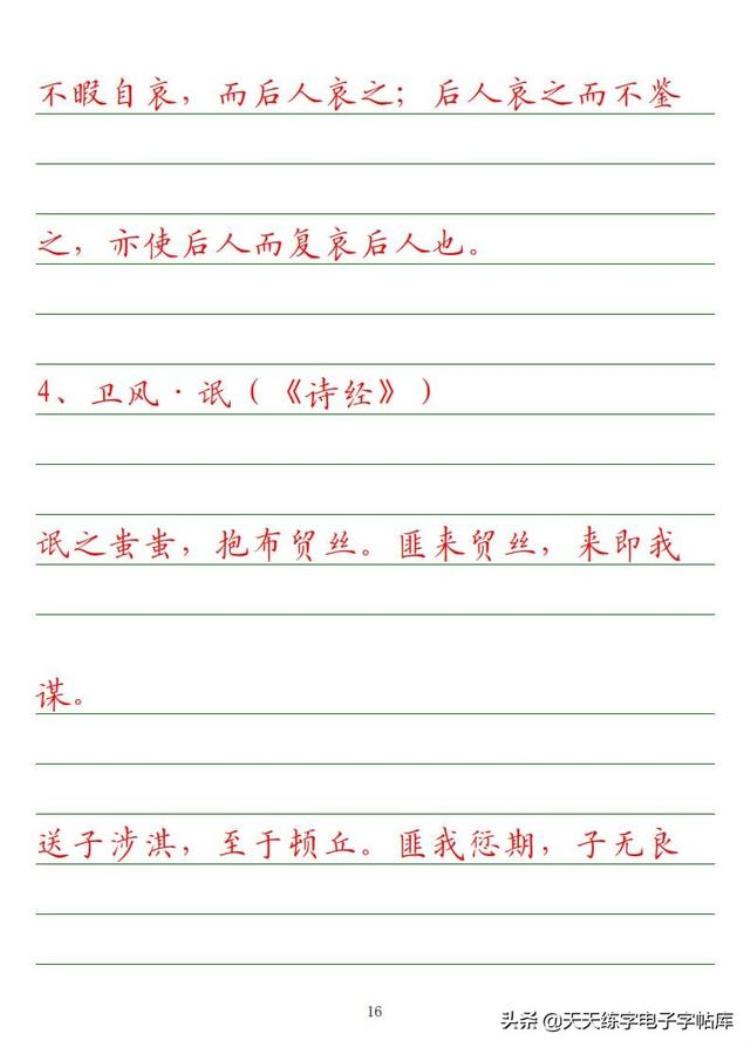 不暇自哀，而后人哀之；后人哀之而不鉴
之，亦使后人而复哀后人也。
4、卫风·氓（《诗经》）
氓之蚩蚩，抱布贸丝。匪来贸丝，来即我
谋。
送子涉淇，至于顿丘。匪我愆期，子无良
16
头条 @天天练字电子字帖库